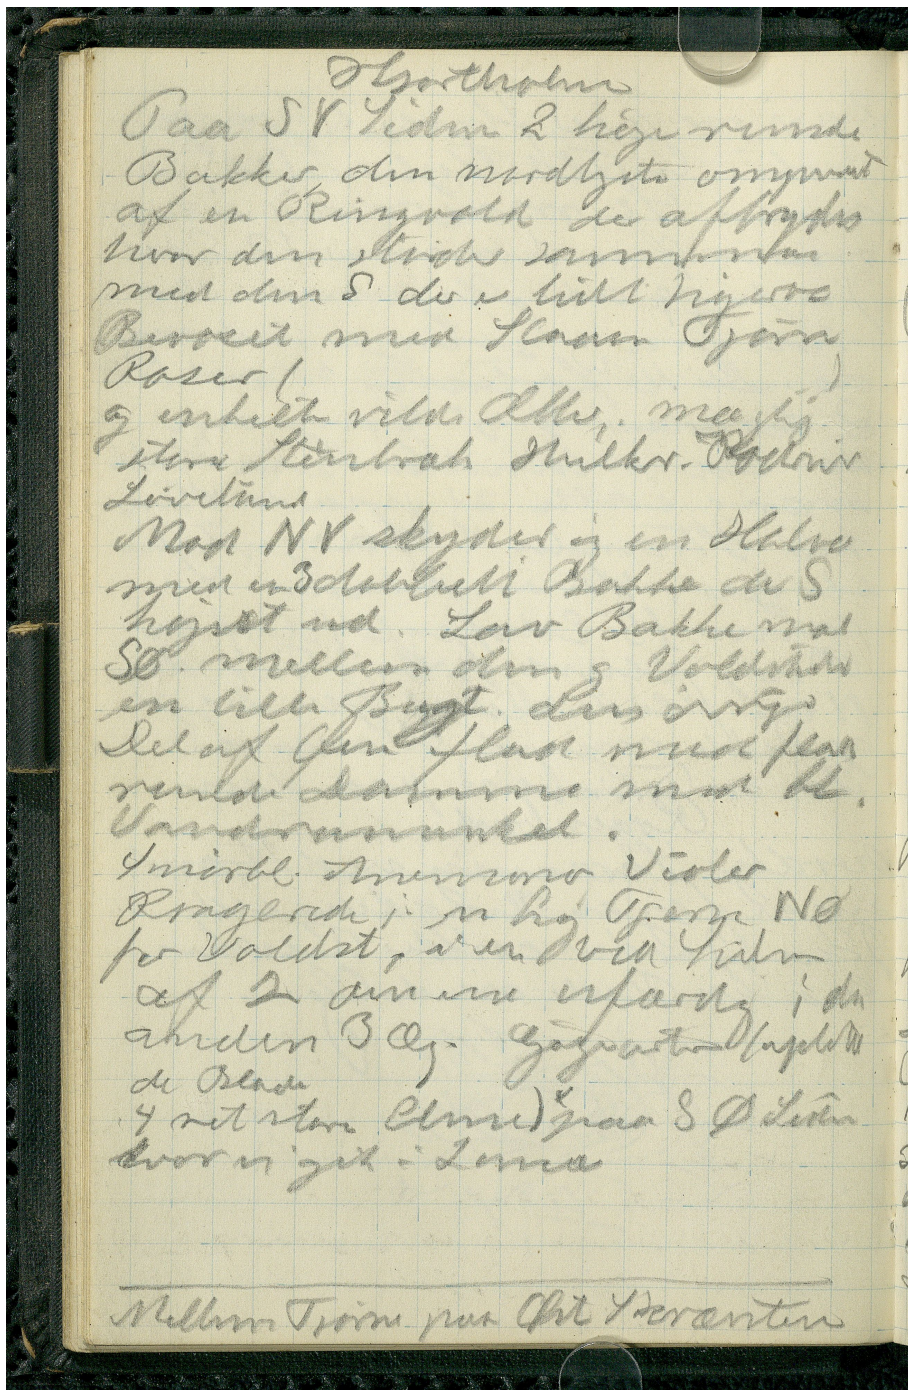 Hjortholm
Paa SV Siden 2 høje runde
Bakker, den nordligste omgivet
af en Ringvold der afbrydes
hvor den støder sammen
med den S der e lidt højere
Bevoxet med Slaaen Tjørn
Roser ( )
og enkelte vilde Æbler. mægtig
store Stenbræk Hulkr. Rødrør
Løvetand
Mod NV skyder sig en Halvø
med en 3dobbelt Bakke der S
højest ud. Lav Bakke mod
SØ. mellem den og Voldstedet
en lille Bugt. Den øvrige
Del af Øen flad med flere
runde Damme med bl.
Vandranunkel.
Anemoner Violer
Kragerede i en høj Tjørn NØ
for Voldst, i en ved Siden
af 2 den ene ufærdig i den
anden 3 Æg. Gøgeurter
de Blade
4 ret store Elme) x paa S Ø Siden
hvor vi gik i Land
Mellem Tjørne paa Øst Skrænten